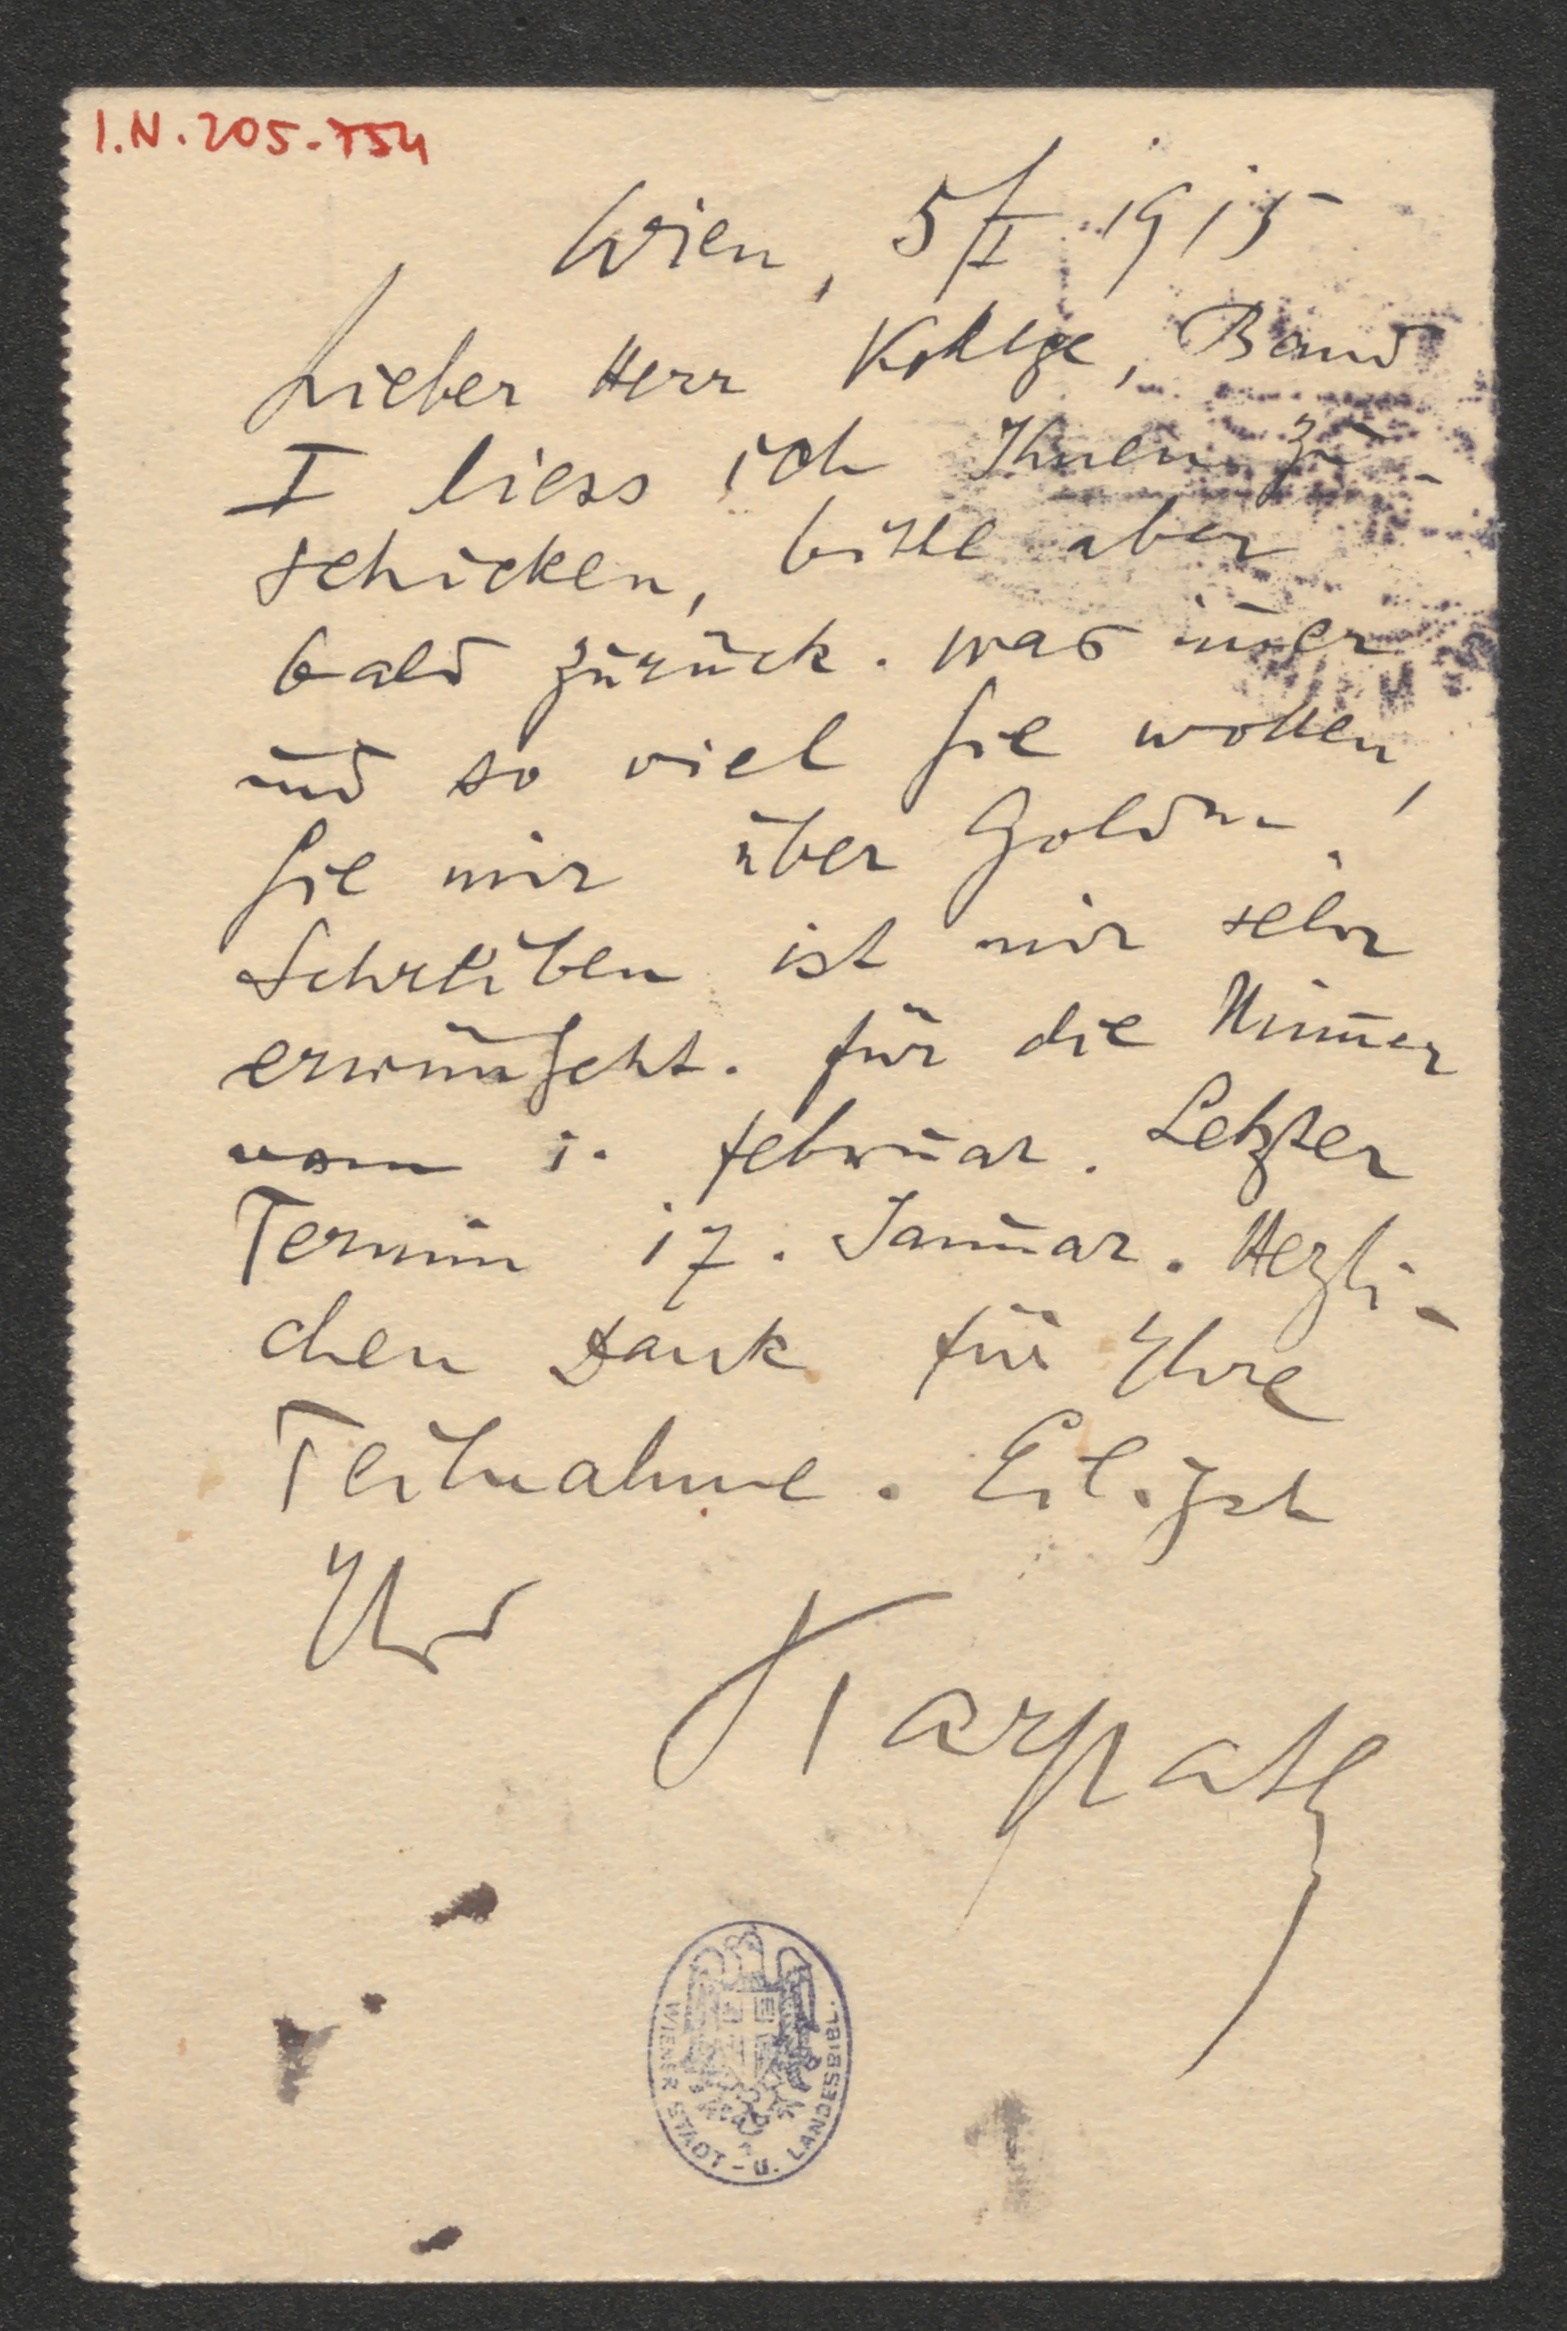 I.N. 205.754
Wien, 5/I 1915
Lieber Herr Kollege, Band
I liess ich Ihnen zu-
schicken, bitte aber
bald zurück. Was im̄er
und so viel Sie wollen,
Sie mir über Goldm.
Schreiben ist mir sehr
erwünscht. Für die Num̄er
vom 1. Februar. Letzter
Termin 17. Januar. Herzli-
chen Dank für Ihre
Teilnahme. Eiligst
Ihr
Karpath
WIENER STADT - U. LANDESBIBL.